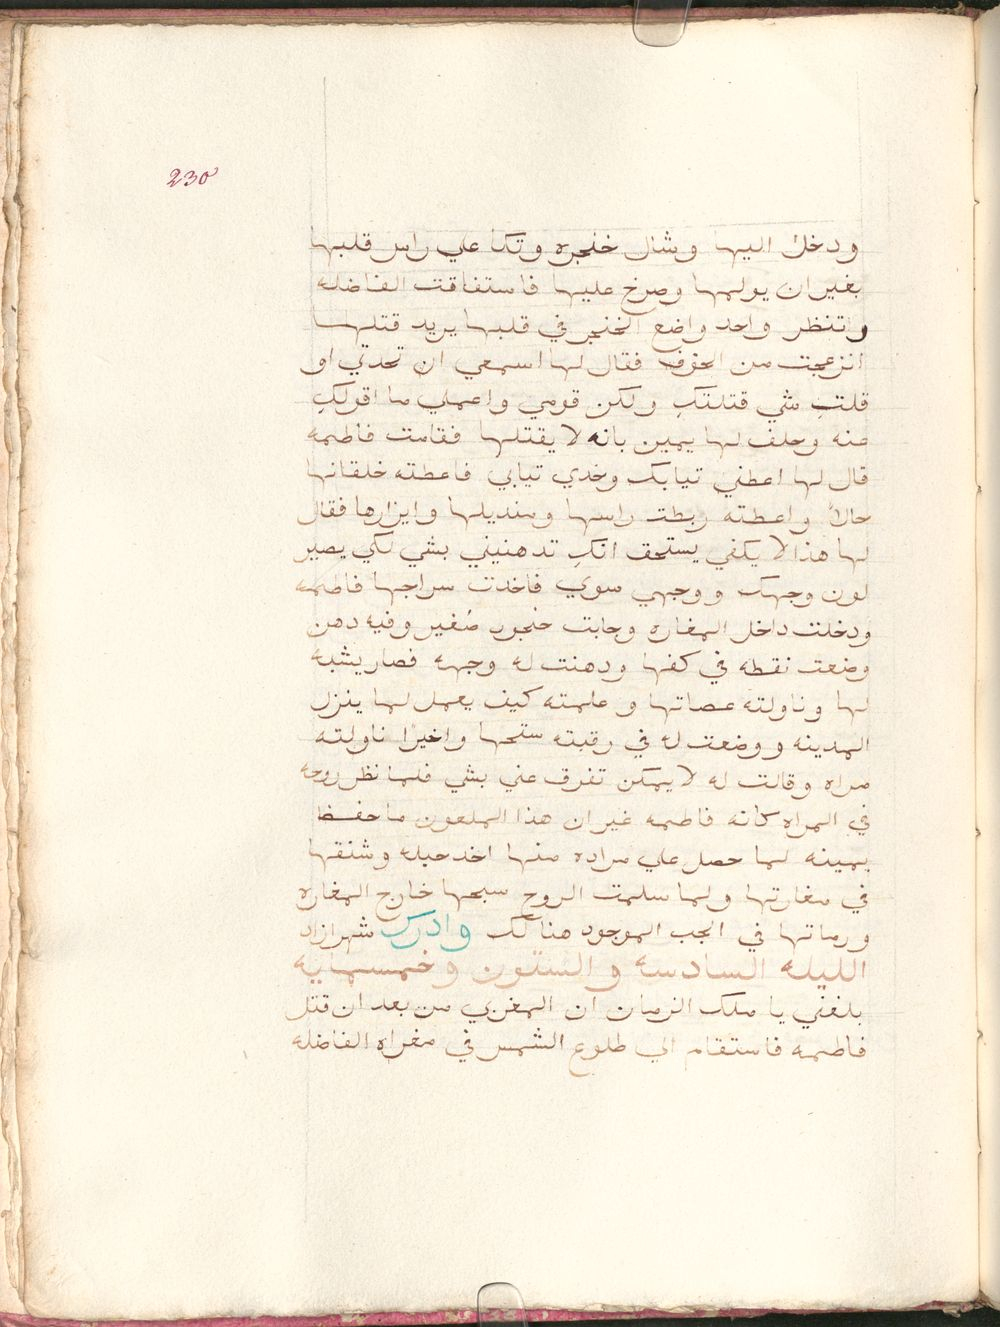 230
ودخل اليها وشال خنجره وتكا علي راس قلبها
بغير ان يولمها وصرخ عليها فاستفاقت الفاضله
واتنظر واحد واضع الخنجر في قلبها يريد قتلها
انزعجت من الخوف فقال لها اسمعي ان تحدتي او
قلتِ شي قتلتكِ ولكن قومي واعملي ما اقولكِ
عنه وحلف لها يمين بانه لا يقتلها فقامت فاطمه
قال لها اعطني تيابك وخدي تيابي فاعطته خلقانها
حالاً واعطته ربطت راسها ومنديلها وايزارها فقال
لها هذا لا يكفي يستحق انكِ تدهنيني بشي لكي يصير
لون وجهك ووجهي سوي فاخدت سراجها فاطمه
ودخلت داخل المغاره وجابت حنجور صُغير وفيه دهن
وضعت نقطه في كفها ودهنت له وجهه فصار يشبه
لها وناولته عصاتها وعلمته كيف يعمل لما ينزل
المدينه ووضعت له في رقبته ستحها واخيرًا ناولته
مراه وقالت له لا يمكن تفرق عني بشي فلما نظر روحه
في المراه كانه فاطمه غير ان هذا الملعون ما حفظ
يمينه لما حصل علي مراده منها اخد حبله وشنقها
في مغارتها ولما سلمت الروح سبحها خارج المغاره
ورماتها في الجب الموجود هنالك وادرك شهرازاد
الليله السادسه والستون وخمسمايه
بلغني يا ملك الزمان ان المغربي من بعد ان قتل
فاطمه فاستقام الي طلوع الشمس في مغراه الفاضله